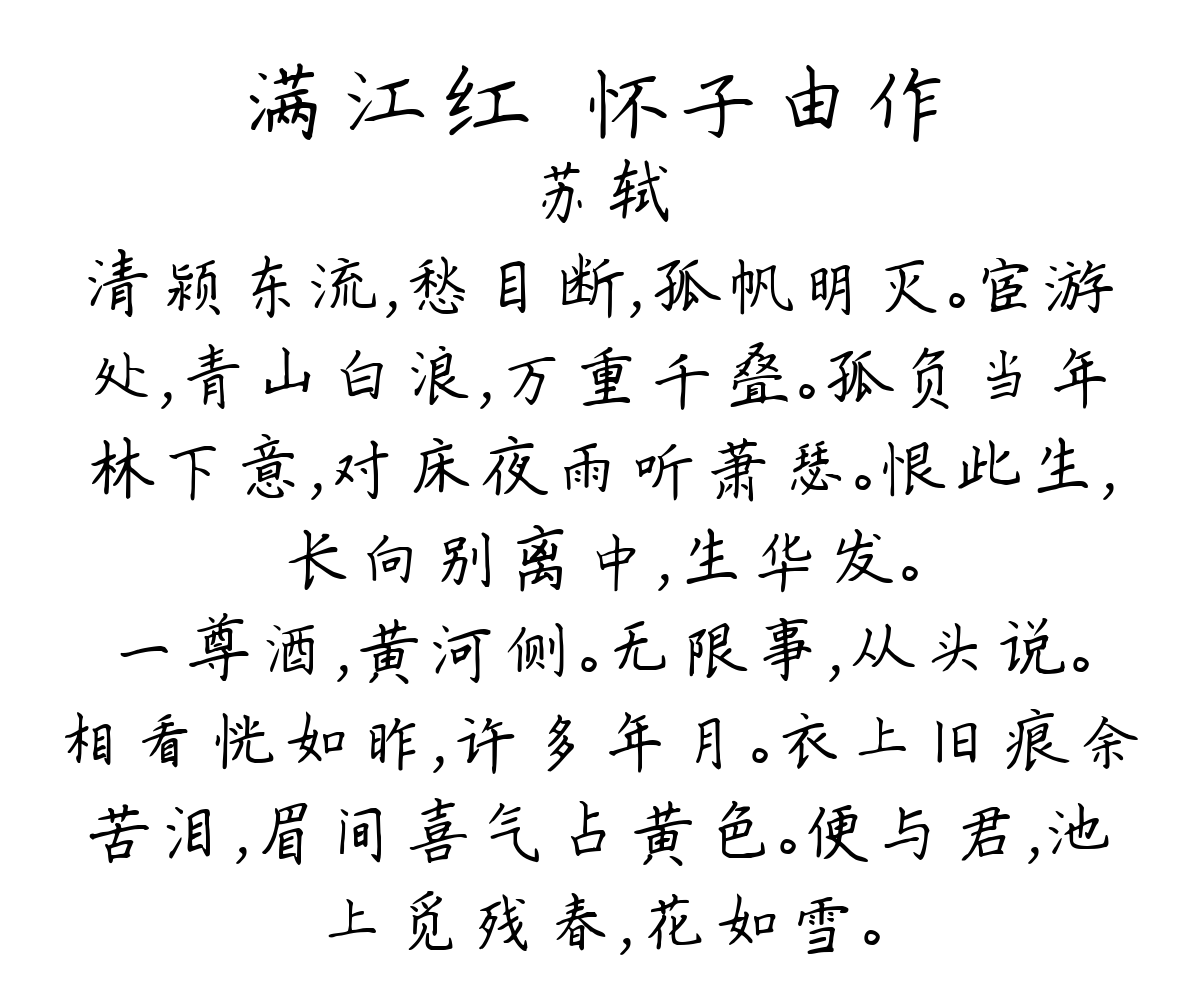 满江红 怀子由作
苏轼
清颍东流,愁目断,孤帆明灭。宦游
处,青山白浪,万重千叠。孤负当年
林下意,对床夜雨听萧瑟。恨此生,
长向别离中,生华发。
一尊酒,黄河侧。无限事,从头说。
相看恍如昨,许多年月。衣上旧痕余
苦泪,眉间喜气占黄色。便与君,池
上觅残春,花如雪。